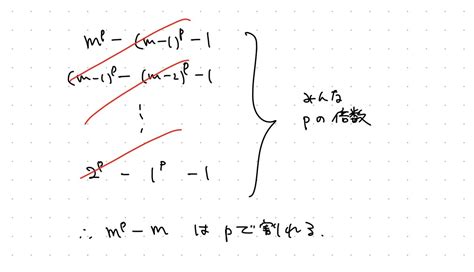 m^p - (m-1)^p - 1
(m-1)^p - (m-2)^p - 1
⋮
2^p - 1^p - 1
みんな
pの倍数
∴ m^p - m は pで割れる.